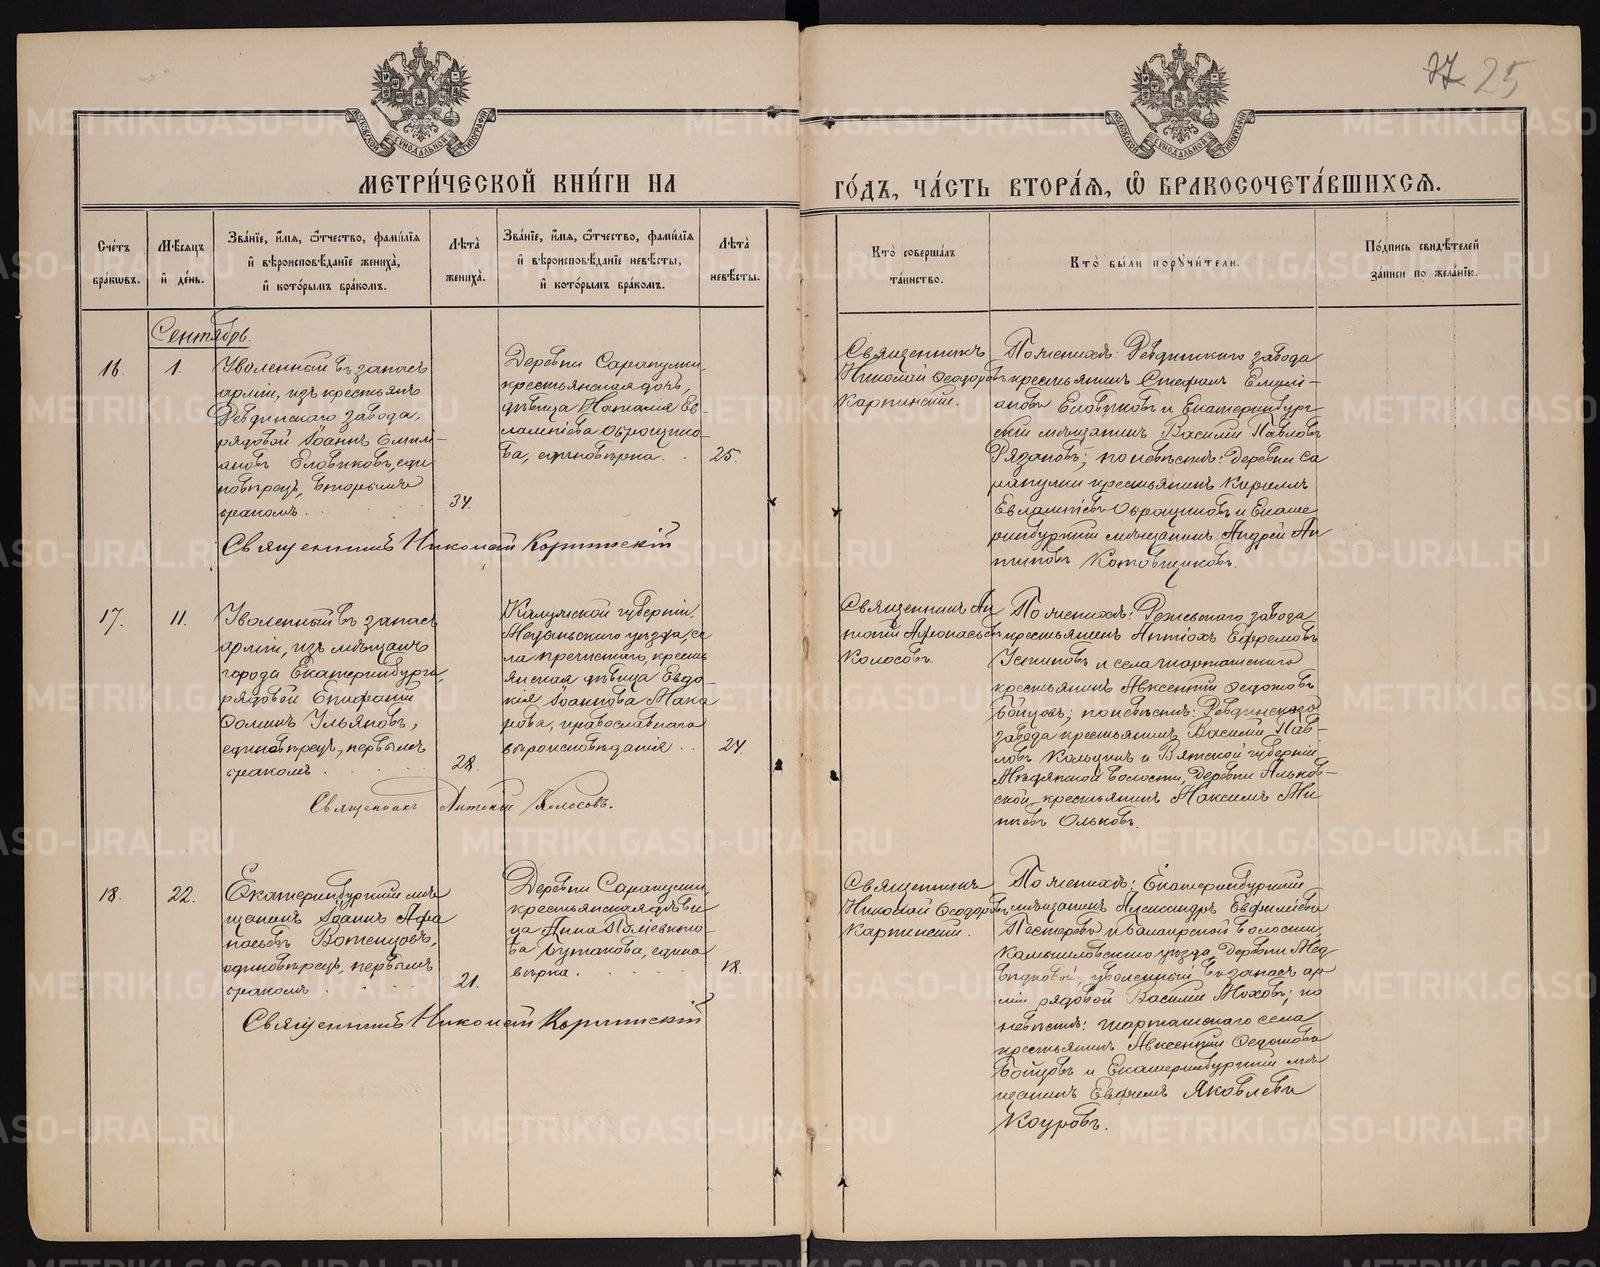 27 25
МОСКОВСКОЙ СѴНОДАЛЬНОЙ ТИПОГРАФІИ
МОСКОВСКОЙ СѴНОДАЛЬНОЙ ТИПОГРАФІИ
МЕТРИ́ЧЕСКОЙ КНИ́ГИ НА
ГО́ДЪ, ЧА́СТЬ ВТОРА́Я, Ѡ҆ БРАКОСОЧЕТА́ВШИХСЯ.
Сче́тъ
бра́кѡвъ.
Мѣ́сяцъ
и҆ де́нь.
Зва́нїе, и҆́мя, ѻ҆́тчество, фами́лїя
и҆ вѣроисповѣ́данїе жениха̀,
и҆ кото́рымъ бра́комъ.
Лѣ́та̀
жениха̀.
Зва́нїе, и҆́мя, ѻ҆́тчество, фами́лїя
и҆ вѣроисповѣ́данїе невѣ́сты,
и҆ кото́рымъ бра́комъ.
Лѣ́та̀
невѣ́сты.
Кто̀ соверша́лъ
та́инство.
Кто̀ бы́ли порꙋчи́тели.
По́дпись свидѣ́телей
за́писи по жела́нїю.
Сентябрь.
16.
1.
Уволенный въ запасъ
арміи, изъ крестьянъ
Ревдинскаго завода,
рядовой Іоаннъ Емилі-
ановъ Еловиковъ, еди
новѣрецъ, вторымъ
бракомъ.
34.
Деревни Сарапулки,
крестьянская дочь,
дѣвица Наталія Ев-
лампіева Оброщико-
ва, единовѣрка.
25.
Священникъ
Николай Ѳеодоровъ
Карпинскій.
По женихѣ: Ревдинскаго завода
крестьянинъ Стефанъ Емилі-
ановъ Еловиковъ и Екатеринбург-
скій мѣщанинъ Василій Павловъ
Рязановъ; по невѣстѣ: Деревни Са
рапулки крестьянинъ Кириллъ
Евлампіевъ Оброщиковъ и Екате
ринбургкій мѣщанинъ Андрей Ан
типовъ Котовщиковъ.
Священникъ Николай Карпинскій
17.
11.
Уволенный въ запасъ
арміи, изъ мѣщанъ
города Екатеринбурга,
рядовой Епифаній
Ѳоминъ Ульяновъ,
единовѣрецъ, первымъ
бракомъ.
28.
Калужской губерніи,
Медынскаго уѣзда, се
ла Пречистаго, кресть
янская дѣвица Евдо-
кія Іоаннова Мака
рова, православнаго
вѣроисповѣданія.
24.
Священникъ Ан
тоній Аѳонасьевъ
Колосовъ.
По женихѣ: Режевскаго завода
крестьянинъ Антіохъ Ефремовъ
Устиновъ и села Шарташскаго
крестьянинъ Авксентій Ѳедотовъ
Бойцовъ; по невѣстѣ: Ревдинскаго
завода крестьянинъ Василій Пав-
ловъ Кольцинъ и Вятской губерніи,
волости, Деревни Альков-
ской крестьянинъ Максимъ Ми
Ольковъ.
Священникъ Антоній Колосовъ.
18.
22.
Екатеринбургкій мѣ
щанинъ Іоаннъ Аѳа
насьевъ Вотенцовъ,
единовѣрецъ, первымъ
бракомъ
21.
Деревни Сарапулки,
крестьянская дѣви
ца Анна Поліевкто-
ва Бутакова, едино
вѣрка.
18.
Священникъ
Николай Ѳеодоровъ
Карпинскій.
По женихѣ: Екатеринбургкій
мѣщанинъ Александръ Евфиміевъ
Пестеревъ и волости,
Камышловскаго уѣзда, Деревни Мед
вѣдковой, уволенный въ запасъ ар
міи рядовой Василій Моховъ; по
невѣстѣ: Шарташскаго села
крестьянинъ Авксентій Ѳедотовъ
Бойцовъ и Екатеринбургкій мѣ
щанинъ Евфимъ Яковлевъ
Коуровъ.
Священникъ Николай Карпинскій
METRIKI.GASO-URAL.RU